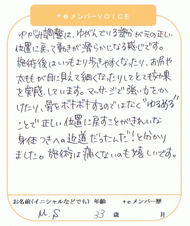 +eメンバーVOICE
ゆがみ調整は、ゆがんでいる部分が元の正しい
位置に戻って動きが滑らかになる感じです。
施術後はいつもより歩きやすくなり、お尻や
太ももが目に見えて細くなったりしてとても効果
を実感しています。マッサージで強い力をか
けたり、骨をボキボキするのではなく"ゆるめる"
ことで"正しい位置に戻すことがきれいな
身体つきへの近道だったんだ"と分かり
ました。施術は痛くないのも嬉しいです。
お名前(イニシャルなどでも) 年齢 +eメンバー歴
M.S 33歳 月